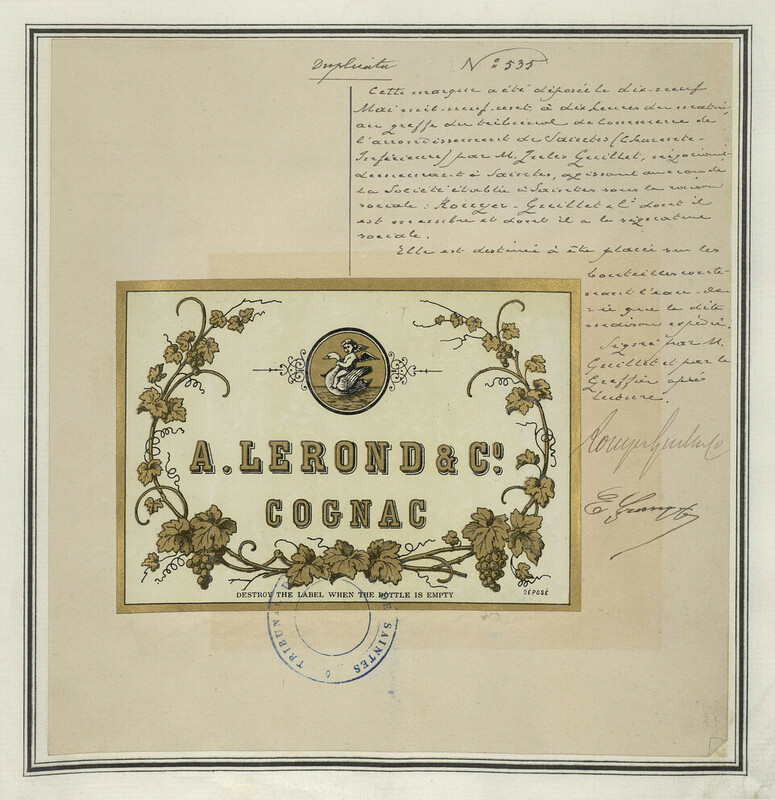 Duplicata
N° 535
Cette marque a été déposée le dix-neuf
Mai mil-neuf-cent à dix heures du matin,
au greffe du tribunal de Commerce de
l'arrondissement de Saintes (Charente-
Inférieure) par M. Jules Guillet, négociant
demeurant à Saintes, agissant au nom de
la Société établie à Saintes sous la raison
sociale : Rouyer-Guillet & Cie dont il
est membre et dont il a la signature
sociale.
Elle est destinée à être placée sur les
bouteilles conte-
nant l'eau-de-
vie que la dite
maison expédie.
Signé par M.
Guillet et par le
Greffier après
lecture.
Rouyer Guillet & Co
A. LEROND & Co.
COGNAC
DESTROY THE LABEL WHEN THE BOTTLE IS EMPTY
DÉPOSÉ
TRIBUNAL DE SAINTES